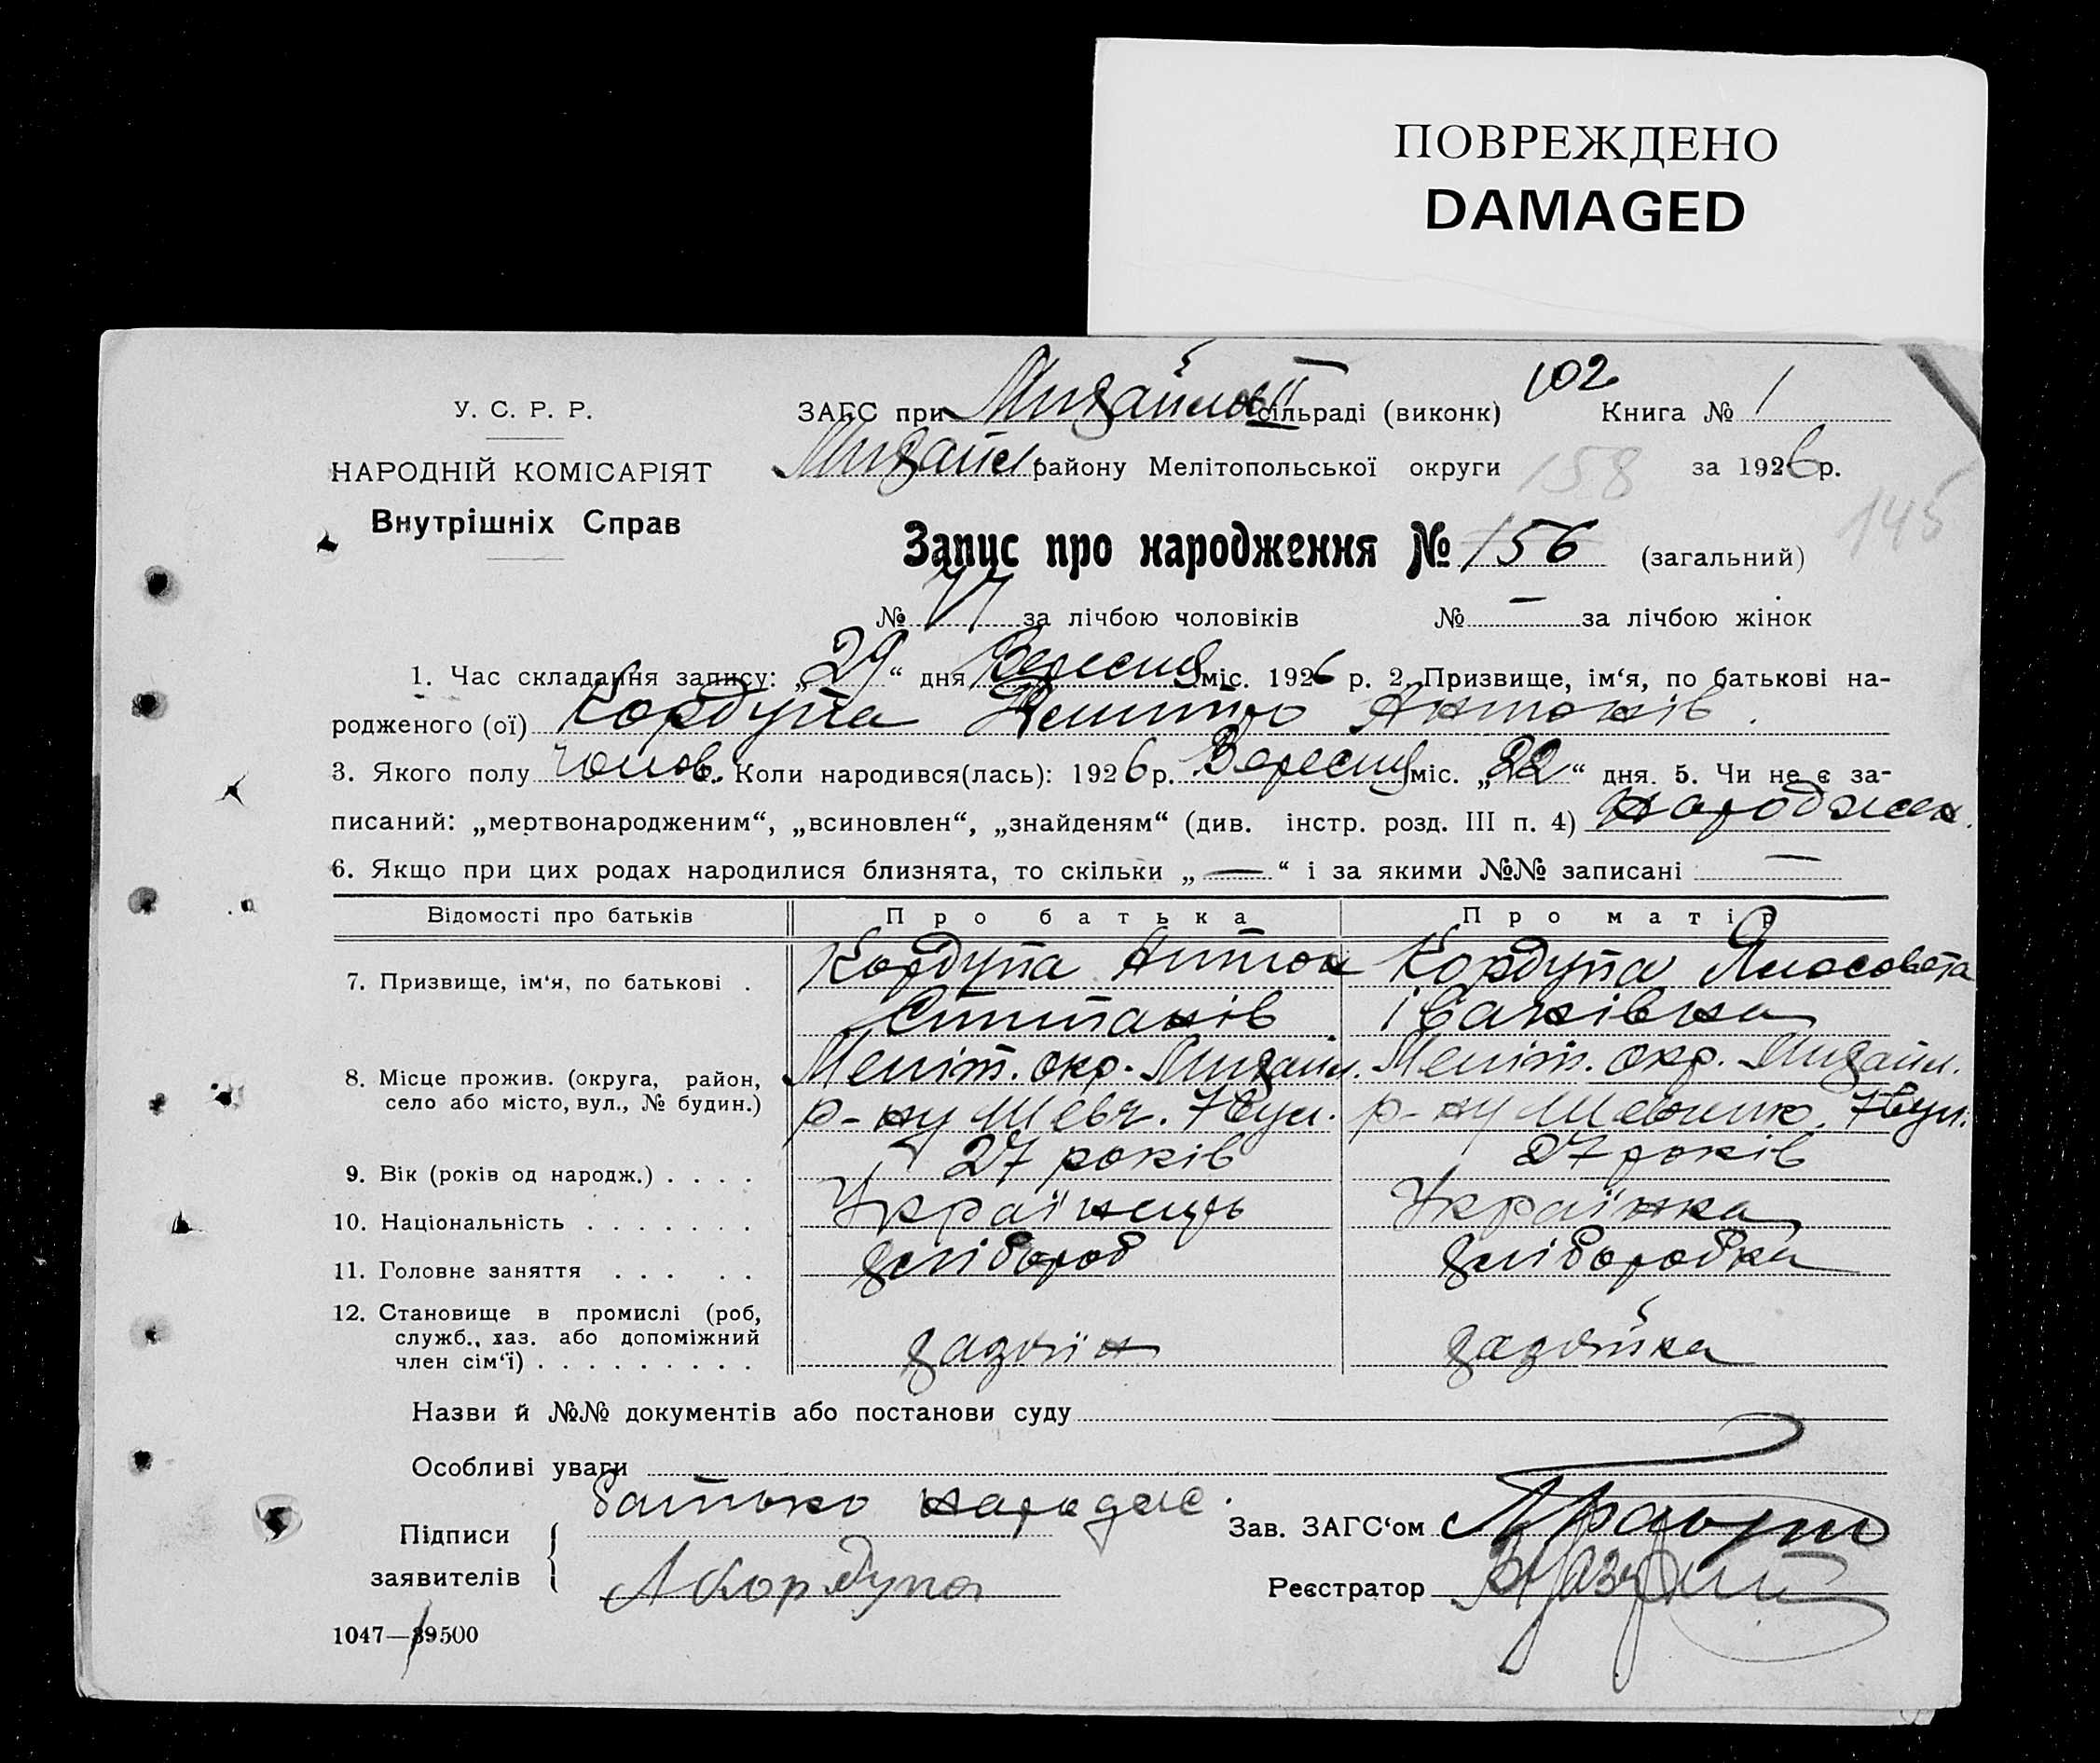 ПОВРЕЖДЕНО
DAMAGED
У. С. Р. Р.
НАРОДНІЙ КОМІСАРІЯТ
Внутрішніх Справ
102
ЗАГС при Михайлов II сільраді (виконк) Книга № 1
Михайл. району Мелітопольської округи 158 за 1926 р.
145
Запис про народження № 156 (загальний)
№ 77 за лічбою чоловіків № — за лічбою жінок
1. Час складання запису: „29“ дня Вересня міс. 1926 р. 2. Призвище, ім‘я, по батькові на-
родженого (ої) Кордупа Антонів.
3. Якого полу чолов. Коли народився(лась): 1926 р. Вересня міс. „22“ дня. 5. Чи не є за-
писаний: „мертвонародженим“, „всиновлен“, „знайденям“ (див. інстр. розд. III п. 4) народжен.
6. Якщо при цих родах народилися близнята, то скільки „—“ і за якими №№ записані —
Відомості про батьків Про батька Про матір
7. Призвище, ім‘я, по батькові . Кордупа Антон Кордупа
Іванівна
8. Місце прожив. (округа, район, Меліт. окр. Михайл. Меліт. окр. Михайл.
село або місто, вул., № будин.) р-ну Шевч. 7 вул. р-ну Шевченко. 7 вул.
9. Вік (років од народж.) . . . . 27 років 27 років
10. Національність . . . . . . . Українець Українка
11. Головне заняття . . . . . хлібороб хліборобка
12. Становище в промислі (роб,
служб., хаз. або допоміжний
член сім‘ї) . . . . . . . . . хазяїн хазяйка
Назви й №№ документів або постанови суду
Особливі уваги
Підписи
заявителів
батько народже.
А Кордупа
Зав. ЗАГС‘ом
Реєстратор
1047—89500